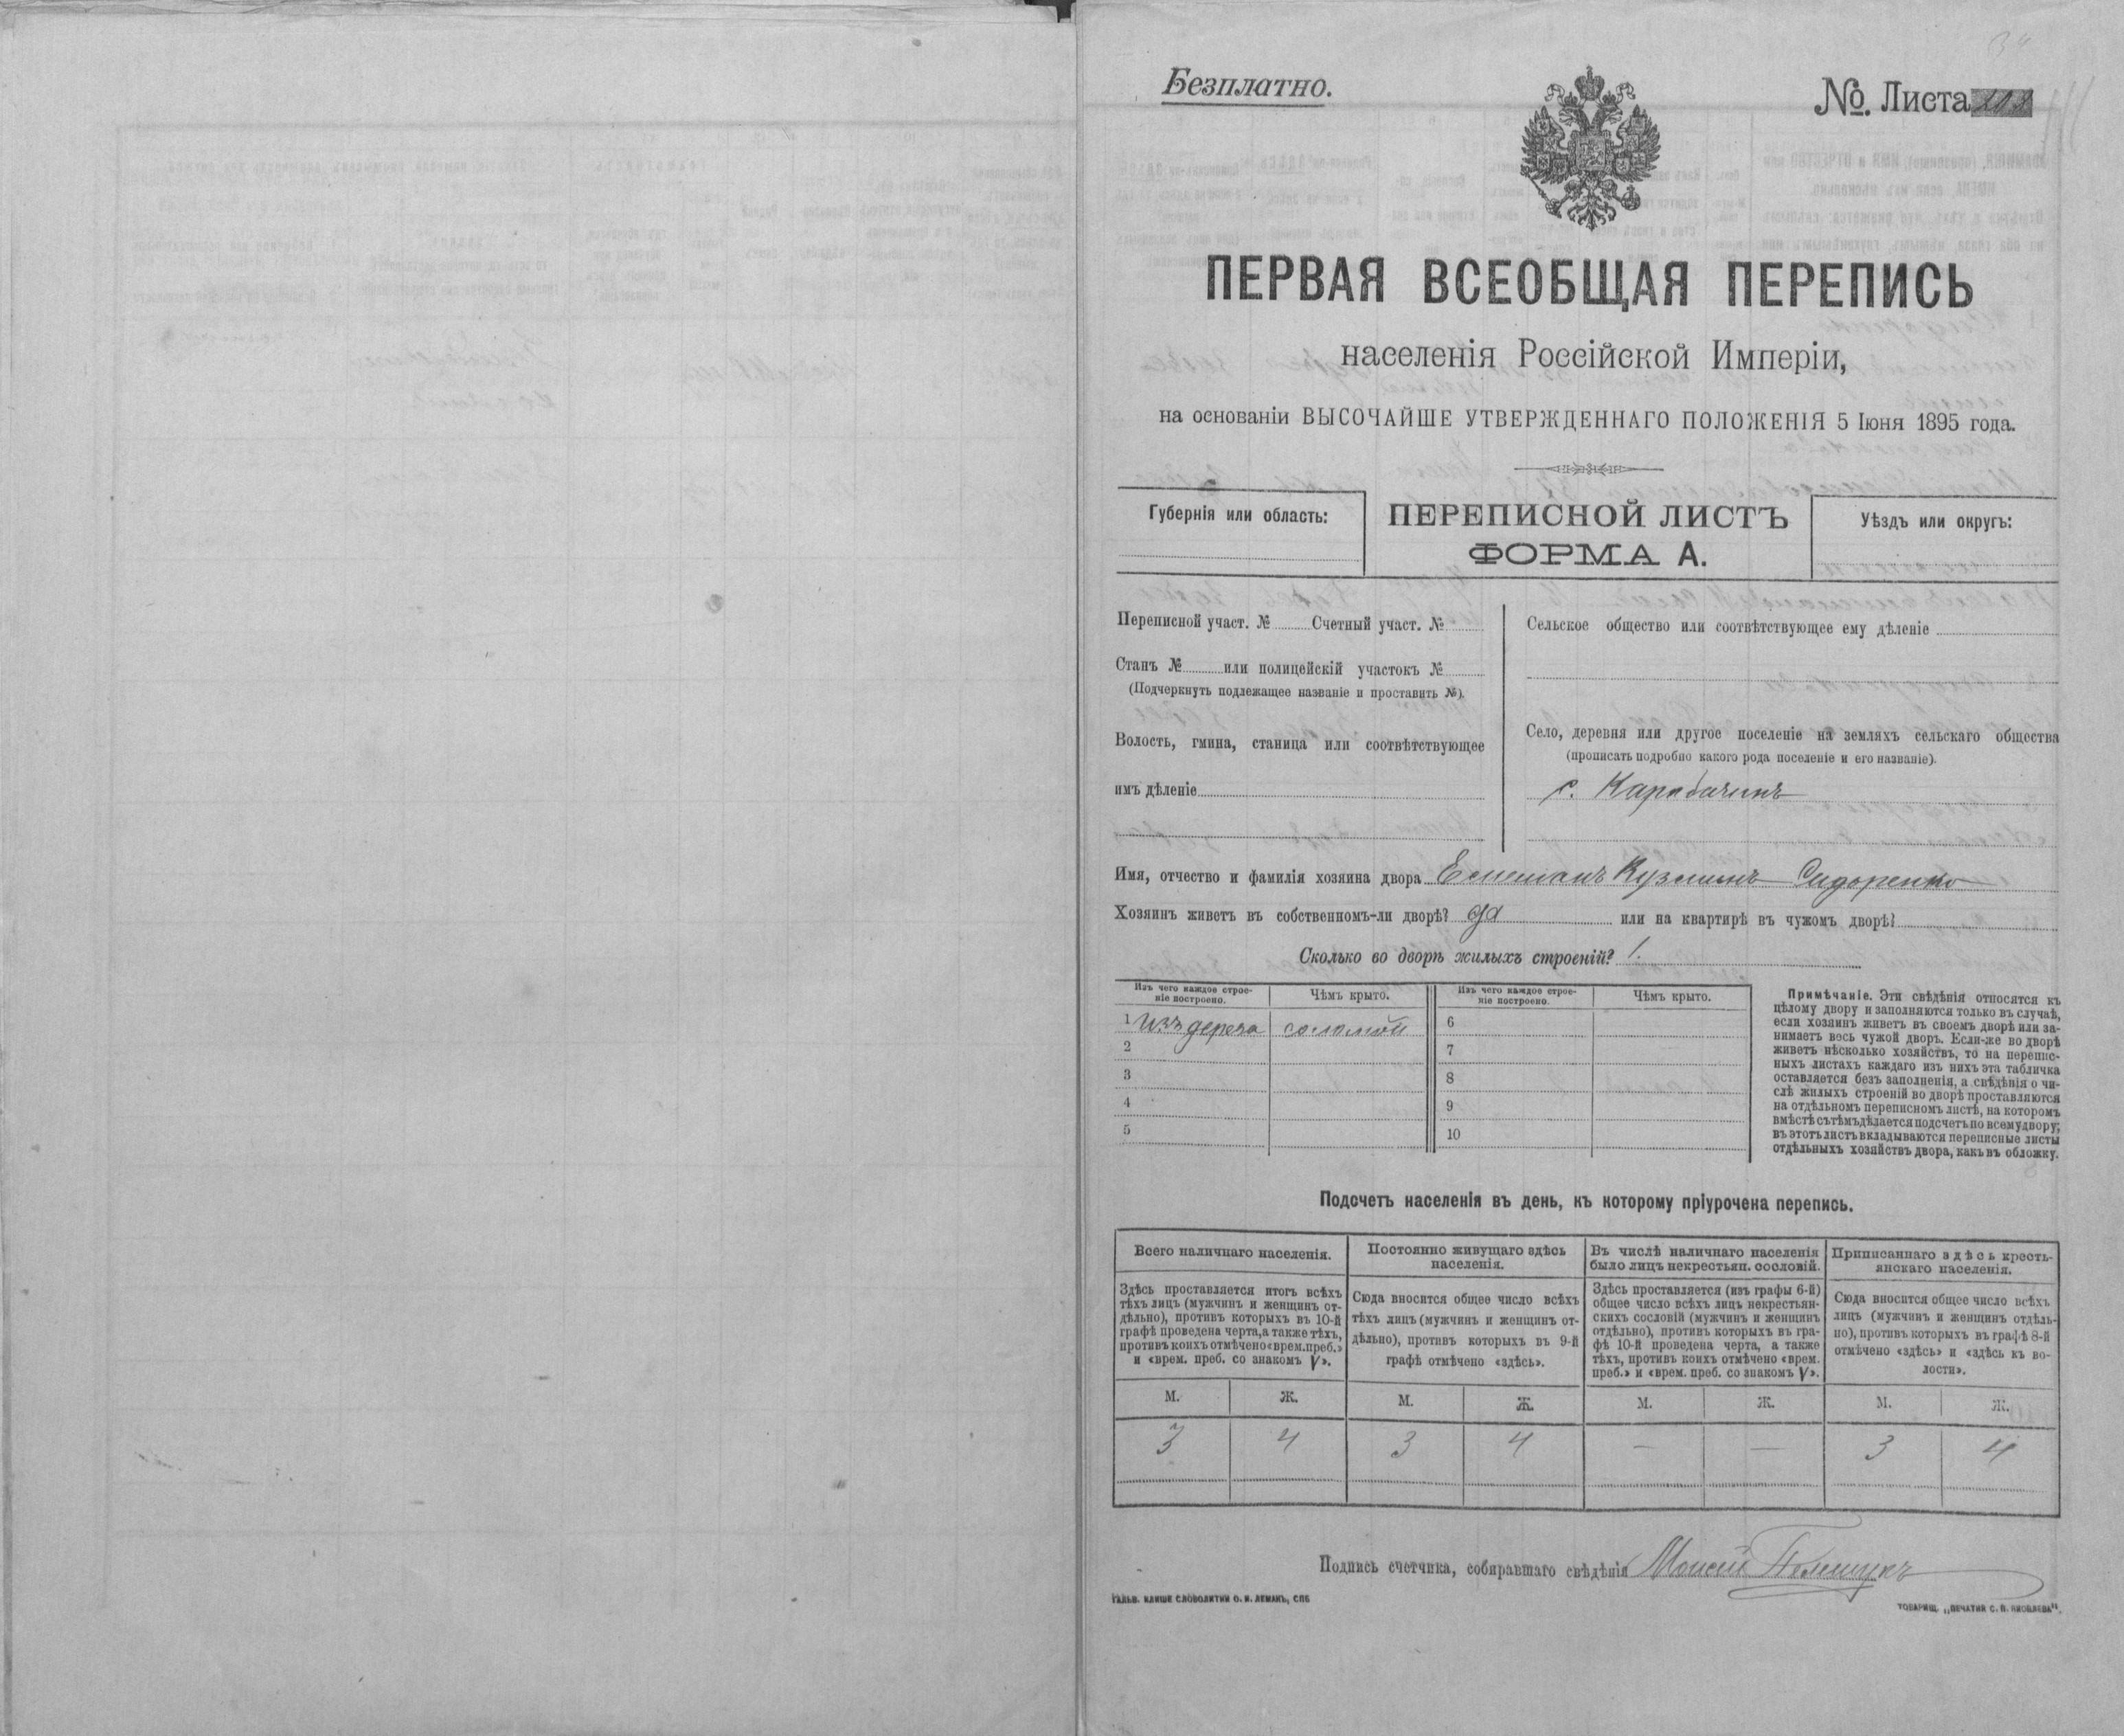 Безплатно.
№. Листа
ПЕРВАЯ ВСЕОБЩАЯ ПЕРЕПИСЬ
населенія Россійской Имперіи,
на основаніи ВЫСОЧАЙШЕ УТВЕРЖДЕННАГО ПОЛОЖЕНІЯ 5 Іюня 1895 года.
Губернія или область:
ПЕРЕПИСНОЙ ЛИСТЪ
ФОРМА А.
Уѣздъ или округъ:
Переписной участ. № Счетный участ. №
Станъ № или полицейскій участокъ №
(Подчеркнуть подлежащее названіе и проставить №).
Волость, гмина, станица или соотвѣтствующее
имъ дѣленіе
Сельское общество или соотвѣтствующее ему дѣленіе
Село, деревня или другое поселеніе на земляхъ сельскаго общества
(прописать подробно какого рода поселеніе и его названіе).
с. Карабачинъ
Имя, отчество и фамилія хозяина двора Кузминъ Сидоренко
Хозяинъ живетъ въ собственномъ-ли дворѣ? да или на квартирѣ въ чужомъ дворѣ?
Сколько во дворѣ жилыхъ строеній? 1.
Изъ чего каждое строе-
ніе построено.
Чѣмъ крыто.
Изъ чего каждое строе-
ніе построено.
Чѣмъ крыто.
1 Изъ дерева соломой
2
3
4
5
6
7
8
9
10
Примѣчаніе. Эти свѣдѣнія относятся къ
цѣлому двору и заполняются только въ случаѣ,
если хозяинъ живетъ въ своемъ дворѣ или за-
нимаетъ весь чужой дворъ. Если-же во дворѣ
живетъ нѣсколько хозяйствъ, то на перепис-
ныхъ листахъ каждаго изъ нихъ эта табличка
оставляется безъ заполненія, а свѣдѣнія о чи-
слѣ жилыхъ строеній во дворѣ проставляются
на отдѣльномъ переписномъ листѣ, на которомъ
вмѣстѣ съ тѣмъ дѣлается подсчетъ по всему двору;
въ этотъ листъ вкладываются переписные листы
отдѣльныхъ хозяйствъ двора, какъ въ обложку.
Подсчетъ населенія въ день, къ которому пріурочена перепись.
Всего наличнаго населенія.
Здѣсь проставляется итогъ всѣхъ
тѣхъ лицъ (мужчинъ и женщинъ от-
дѣльно), противъ которыхъ въ 10-й
графѣ проведена черта, а также тѣхъ,
противъ коихъ отмѣчено «врем. преб.»
и «врем. преб. со знакомъ V».
М. Ж.
3 4
Постоянно живущаго здѣсь
населенія.
Сюда вносится общее число всѣхъ
тѣхъ лицъ (мужчинъ и женщинъ от-
дѣльно), противъ которыхъ въ 9-й
графѣ отмѣчено «здѣсь».
М. Ж.
3 4
Въ числѣ наличнаго населенія
было лицъ некрестьян. сословій.
Здѣсь проставляется (изъ графы 6-й)
общее число всѣхъ лицъ некрестьян-
скихъ сословій (мужчинъ и женщинъ
отдѣльно), противъ которыхъ въ гра-
фѣ 10-й проведена черта, а также
тѣхъ, противъ коихъ отмѣчено «врем.
преб.» и «врем. преб. со знакомъ V».
М. Ж.
— —
Приписаннаго здѣсь кресть-
янскаго населенія.
Сюда вносится общее число всѣхъ
лицъ (мужчинъ и женщинъ отдѣль-
но), противъ которыхъ въ графѣ 8-й
отмѣчено «здѣсь» и «здѣсь къ во-
лости».
М. Ж.
3 4
Подпись счетчика, собиравшаго свѣдѣнія Моисей
ГАЛЬВ. КЛИШЕ СЛОВОЛИТНИ О. И. ЛЕМАНЪ, СПБ
ТОВАРИЩ. „ПЕЧАТНЯ С. П. ЯКОВЛЕВА“.